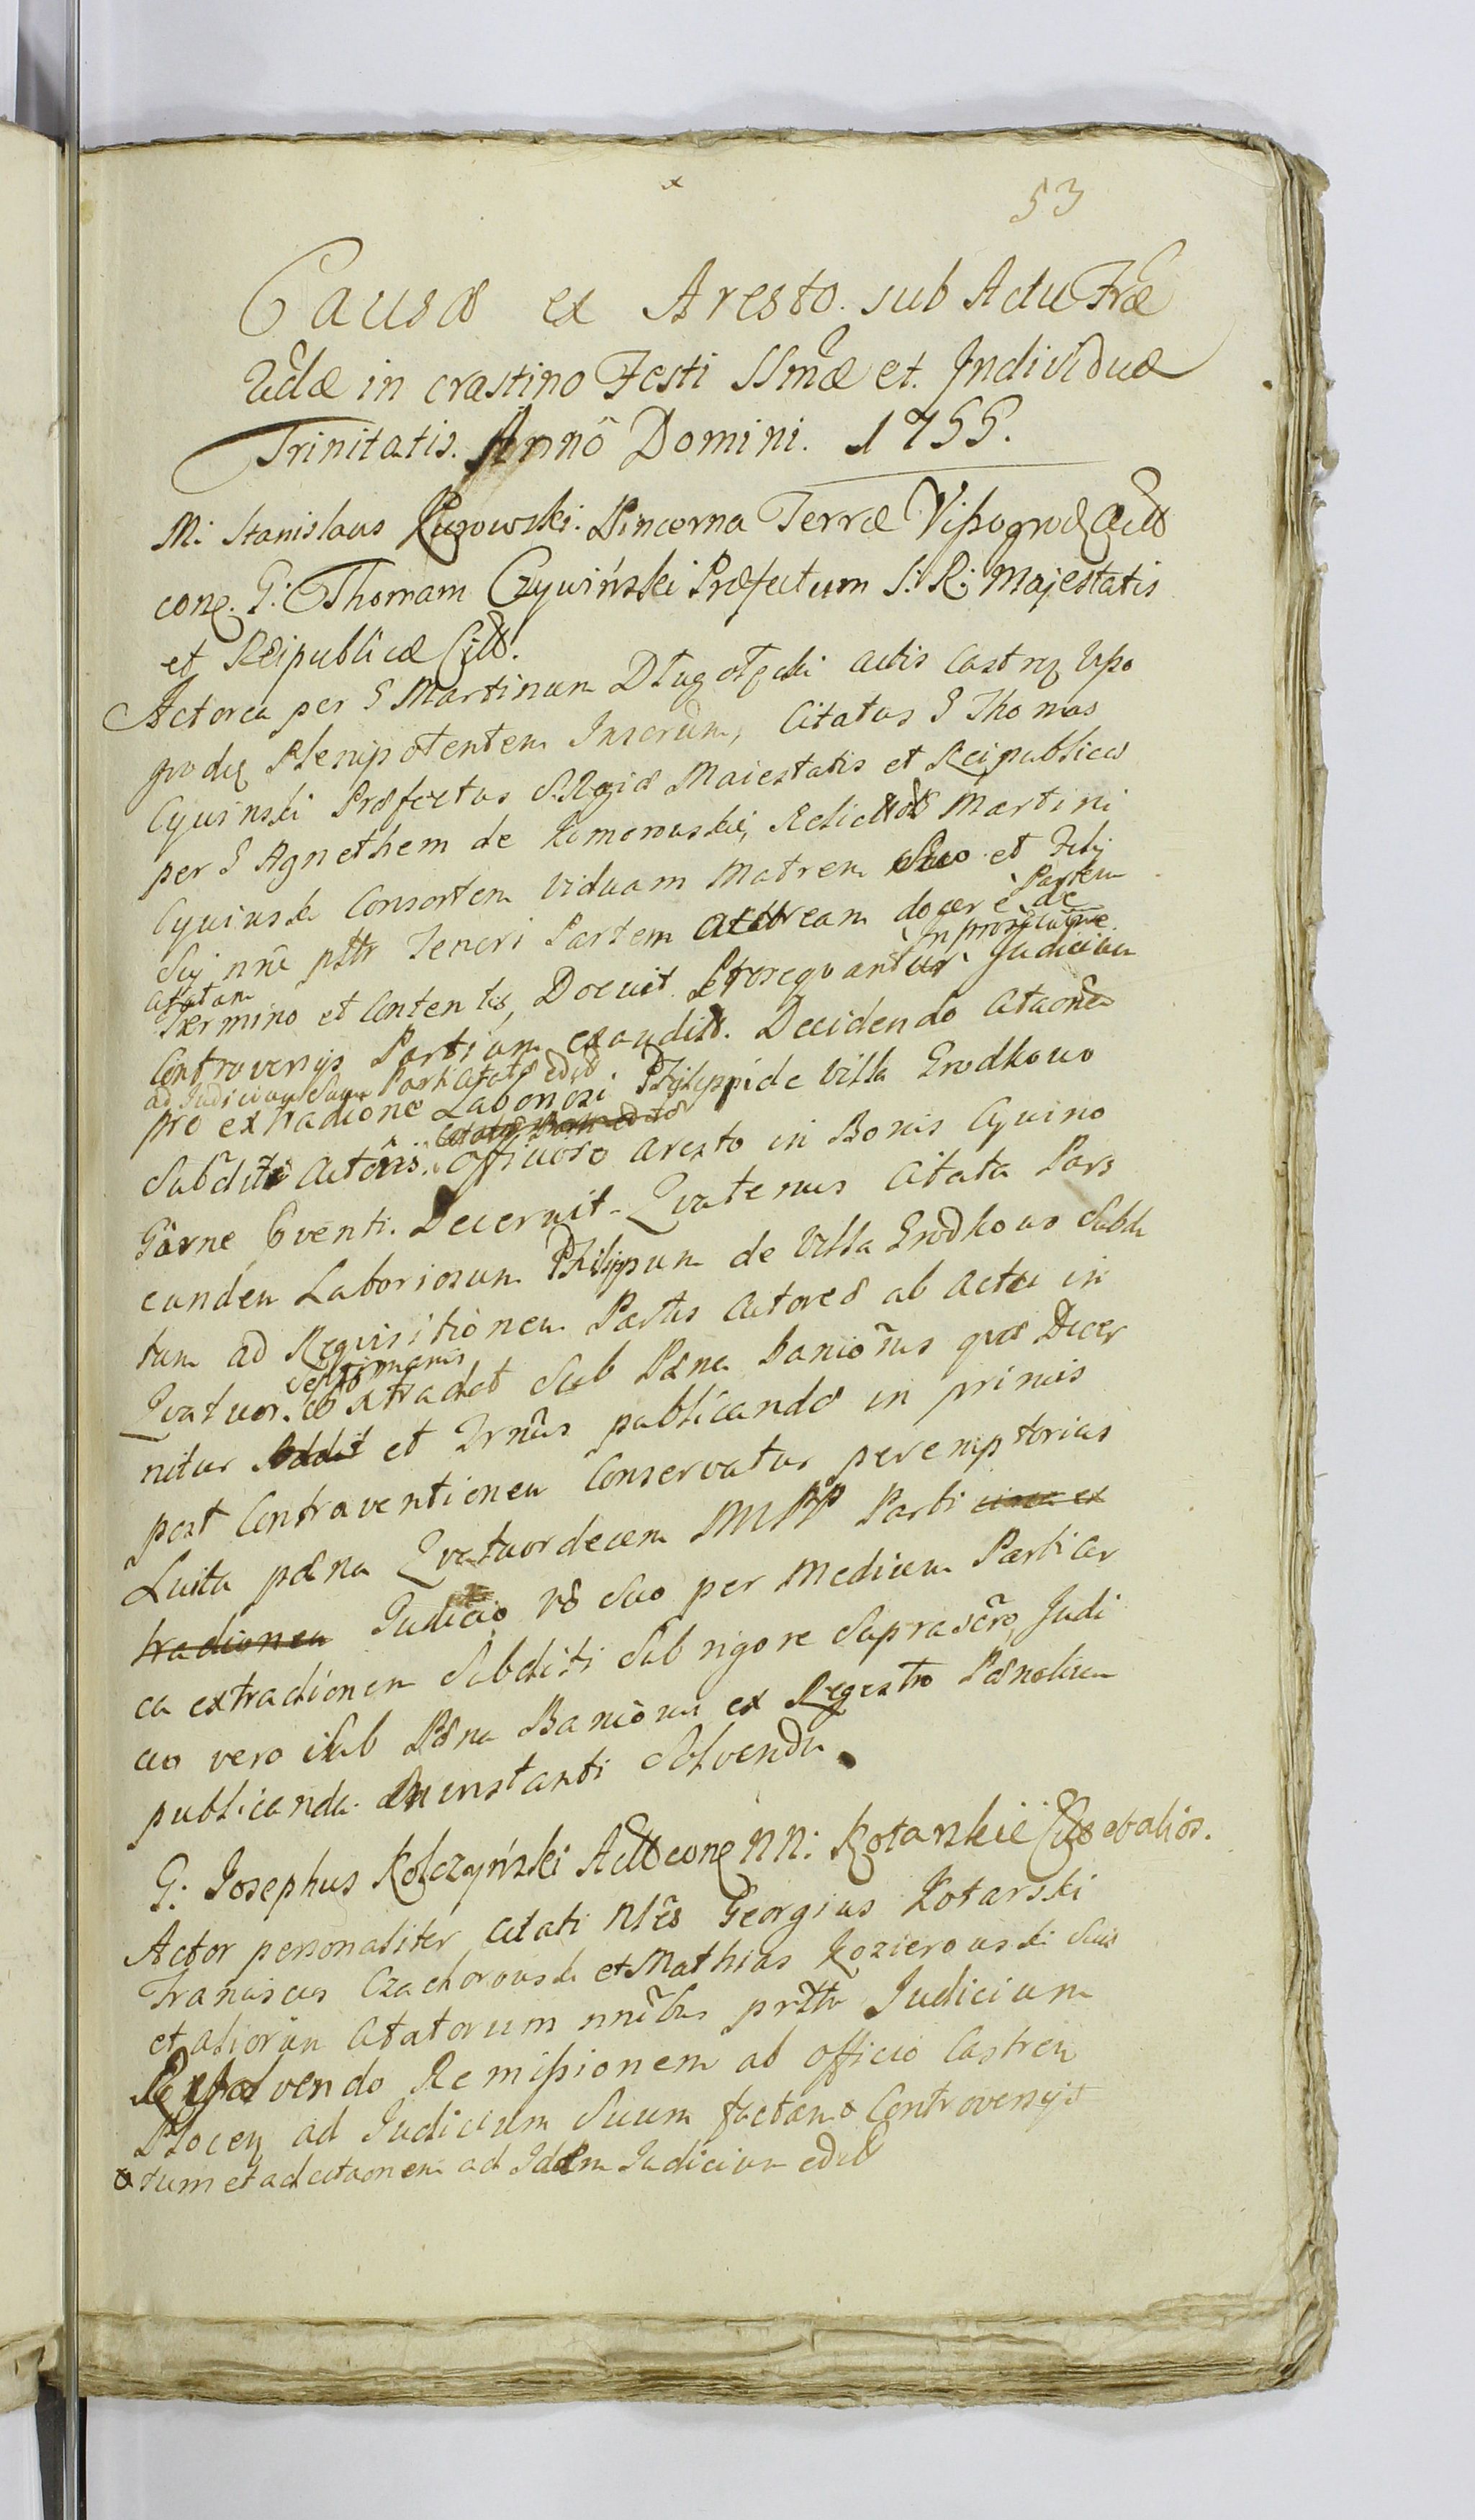 53
Causæ ex Aresto. sub Actu Fræ
2dæ in crastino Festi SSmæ et. Individuæ
Trinitatis. Annô Domini. 1755.
M: Stanislaus Pincerna Terræ
conq. G: Thomam Czywiński Præfectum S: R: Majestatis
et Reipublicæ Citt.
Actorea per G Martinum Długołęcki actis Castrq Vyso
grodq Plenipotentem Insertum, Citatus G Thomas
Cywinski Præfectus S. Rgiæ Maiestatis et Reipublicæ
per G Agnethem de Komorowskie, Relictæ Martini
Cywinski Consortem viduam Matrem et Filij
Sui nnê pttr Teneri Partem actoream docere de
Partem
Citatam
Termino et Contentis, Docuit Prosequantur Judicium
Controversijs Partium exauditis. Decidendo Citaonem
ad Judicium Suum Parti Citatæ editæ
pro extradione Laboriosi Philippi de Villa Grodkowo
Subditi Actoris. Officioso aresto in Bonis Cywino
Garne Conventi. Decernit. Quatenus Citata Pars
eundem Laboriosum Philippum de Villa Grodkowo Subdi
tum ad Requisitionem Partis Actoreæ ab actu in
Septimanis
Quatuor. extradet Sub Pæna banionis quæ Decer
nitur et Trnûs publicandæ in primis
post Contraventionem Conservatur peremptorius
Luita pæna Quatuordecem MPP Parti circa ex
tradionem Judicio vô Suo per Medium Parti Cir
ca extradionem Subditi Sub rigore Suprascro, Judi
cio vero Sub Pæna Banionis ex Regestro Pænalium
publicanda. In instanti Solvenda.
G: Josephus Kolczyński Act conq NN: Kotarskie Citt et aliôs.
Actor personaliter Citati Nlês Georgius Kotarski
Franciscus Czachorowski et Mathias Kozierowski Suis
et aliorum Citatorum nnîbus prttr Judicium
Resolvendo Remissionem ab officio Castren
Plocen ad Judicium Suum factam Controversijs
tum et ad citaonem ad Idem Judicium edit